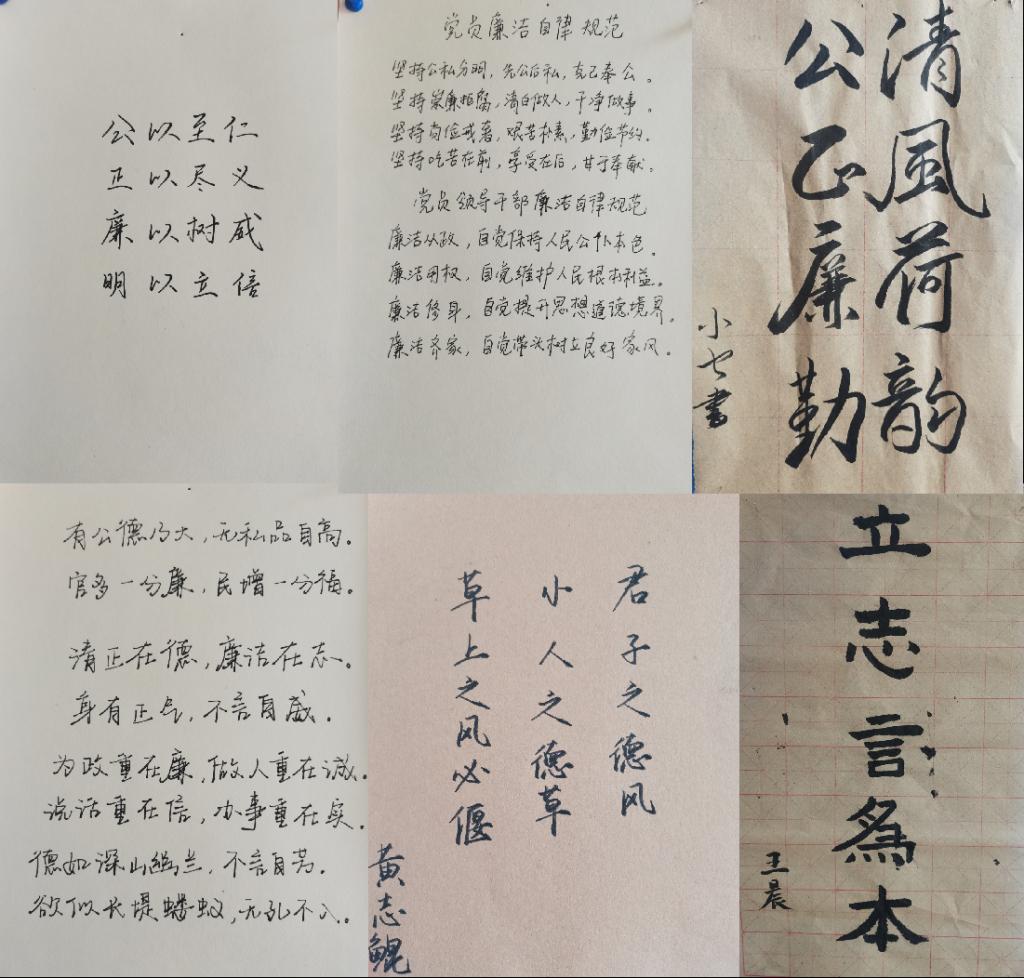 公以至仁
正以尽义
廉以树威
明以立信
党员廉洁自律规范
坚持公私分明，先公后私，克己奉公。
坚持崇廉拒腐，清白做人，干净做事。
坚持尚俭戒奢，艰苦朴素，勤俭节约。
坚持吃苦在前，享受在后，甘于奉献。
党员领导干部廉洁自律规范
廉洁从政，自觉保持人民公仆本色。
廉洁用权，自觉维护人民根本利益。
廉洁修身，自觉提升思想道德境界。
廉洁齐家，自觉带头树立良好家风。
清風荷韵
公正廉勤
小七書
有公德乃大，无私品自高。
官多一分廉，民增一分福。
清正在德，廉洁在志。
身有正气，不言自威。
为政重在廉，做人重在诚。
说话重在信，办事重在实。
德如深山幽兰，不言自芳。
欲似长堤蝼蚁，无孔不入。
君子之德风
小人之德草
草上之风必偃
黄志鲲
立志言為本
王晨